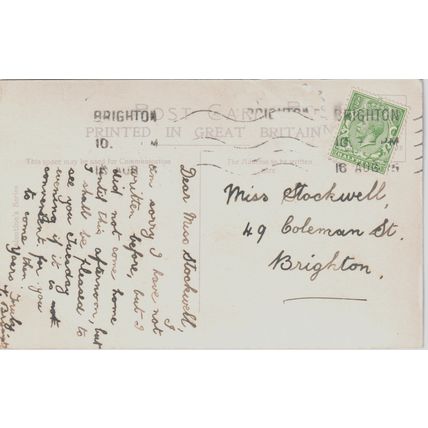 BRIGHTON
10. PM
BRIGHTON
BRIGHTON
10. PM
16 AUG
POST CARD
PRINTED IN GREAT BRITAIN
This space may be used for Communication
The Address to be written
Here
Dear Miss Stockwell,
I
am sorry I have not
written before, but I
did not come home
until this afternoon, but
I shall be pleased to
see you Tuesday
evening if it is
convenient for you
to come then.
Yours Truly
Miss Stockwell,
49 Coleman St.
Brighton.